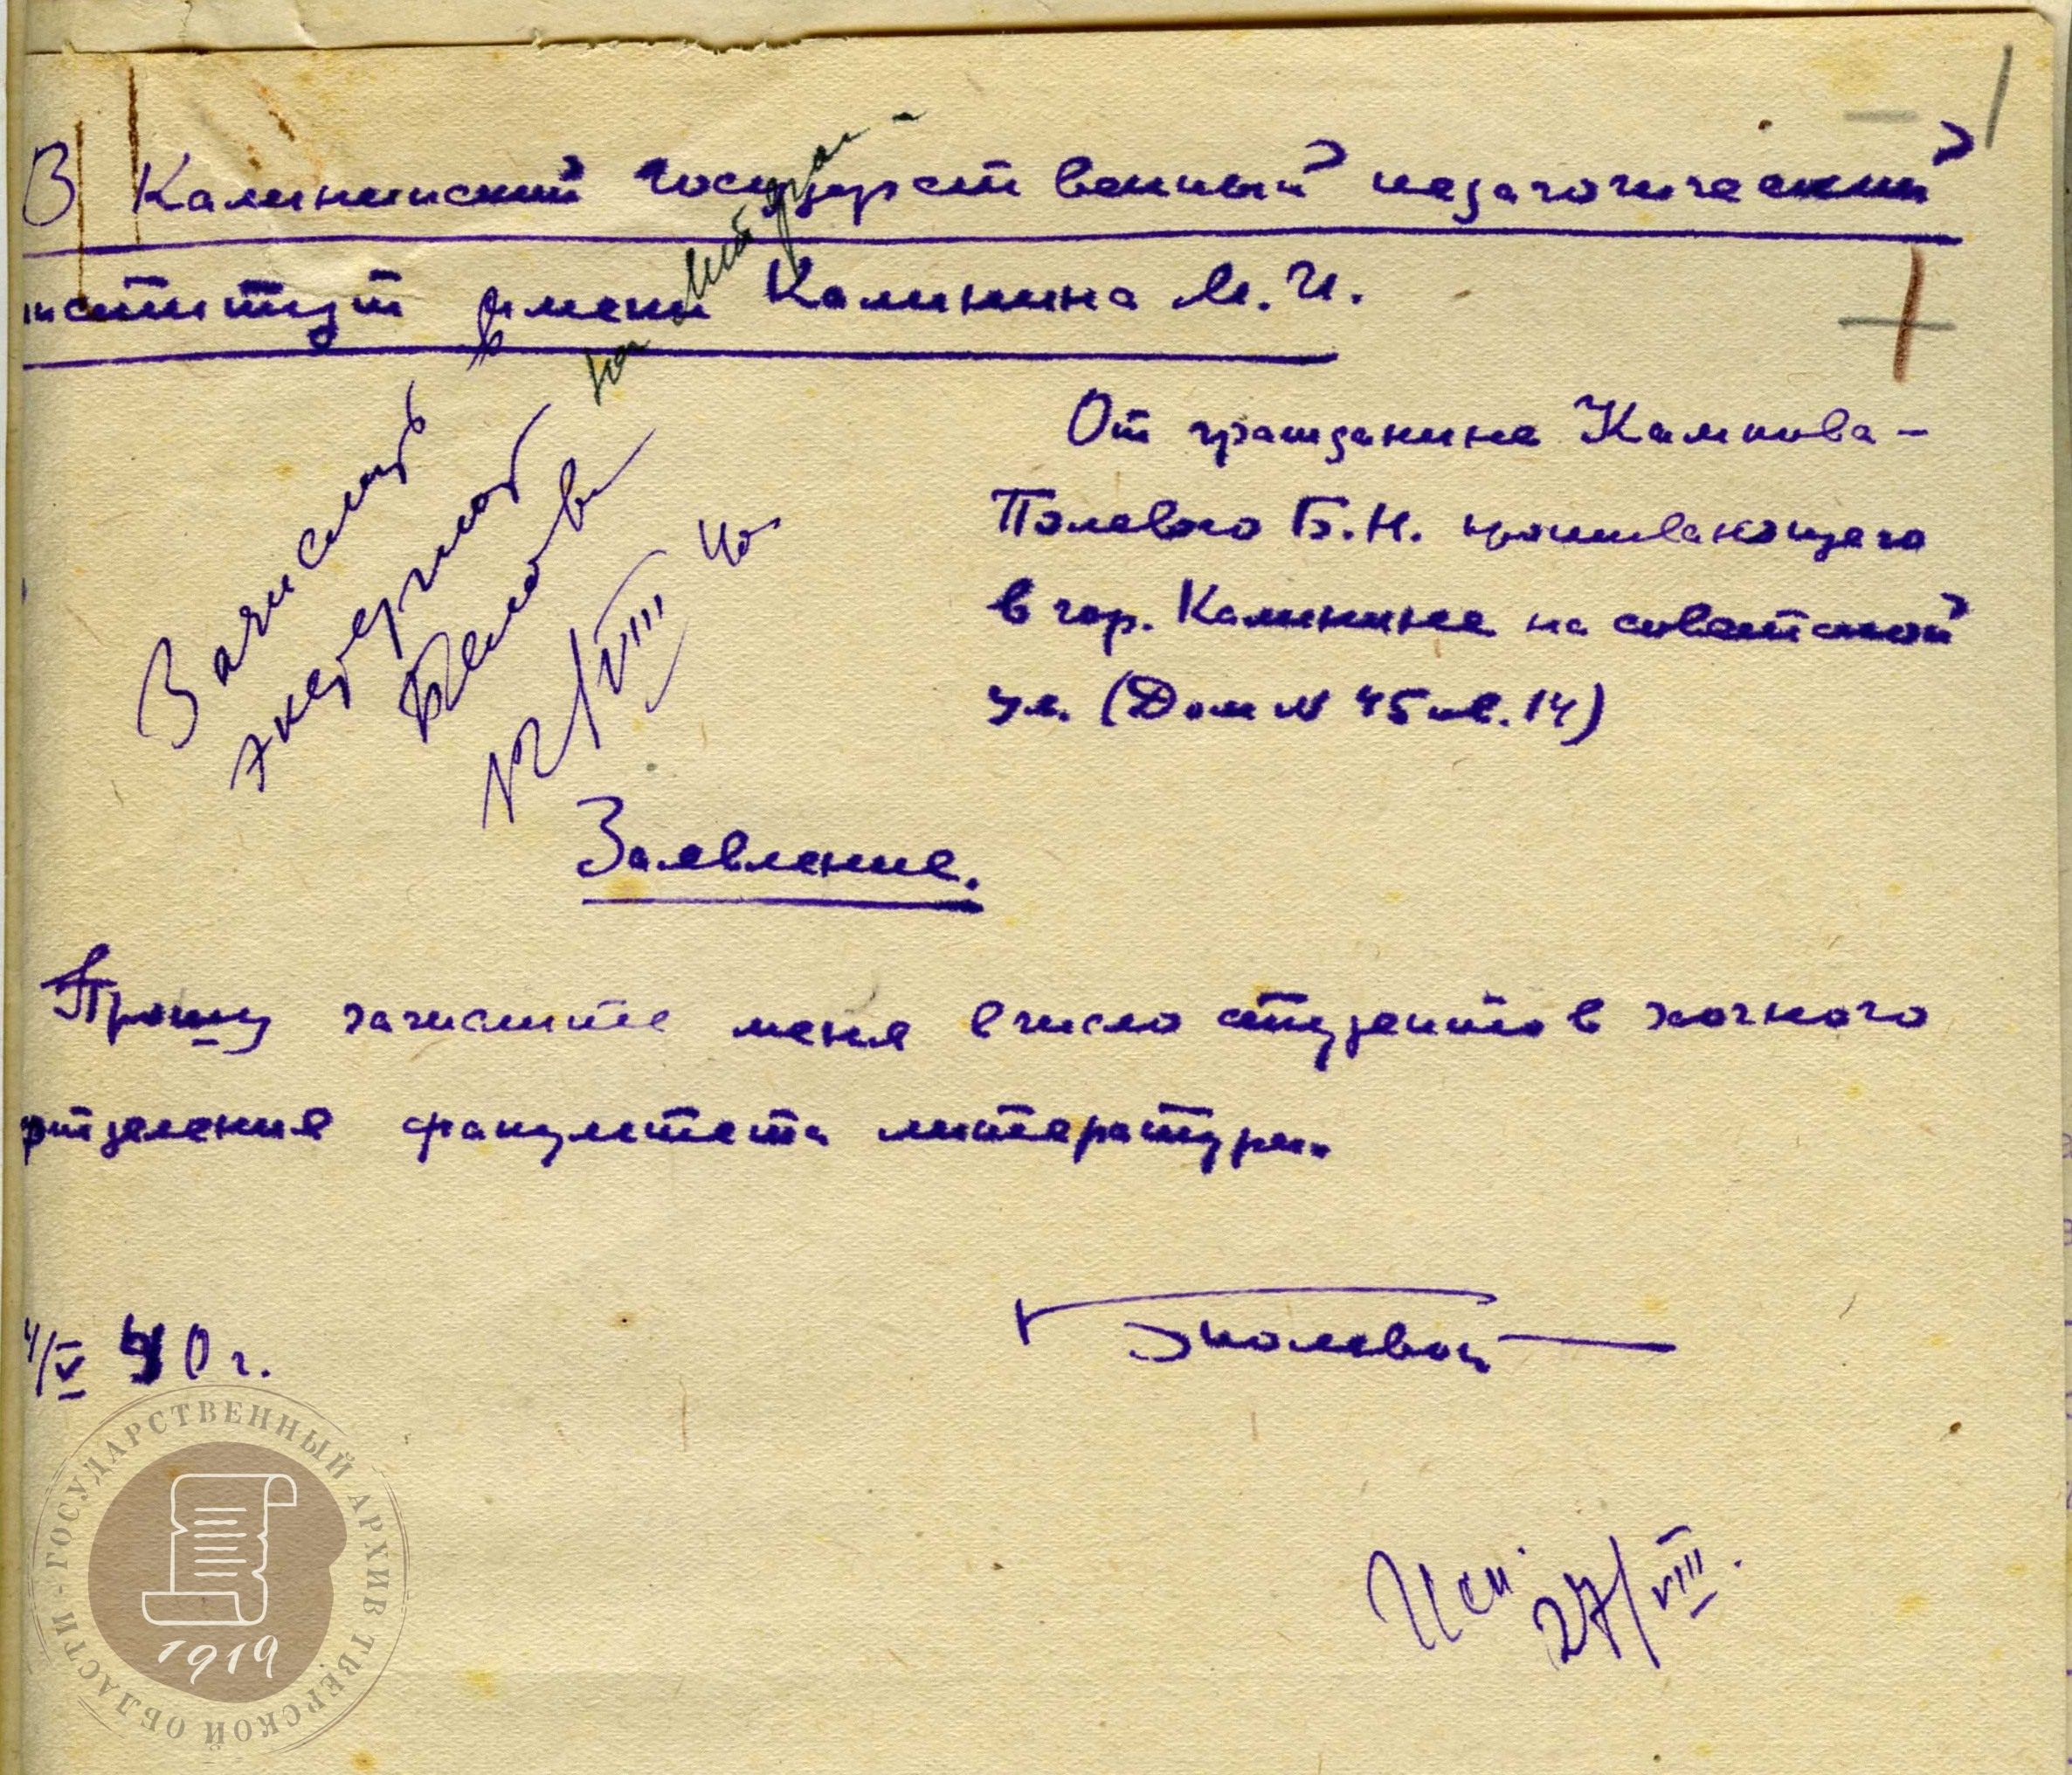 В Калининский государственный педагогический
институт имени Калинина М. И.
От гражданина Кампова-
Полевого Б. Н. проживающего
в гор. Калинине на советской
ул. (Дом N 45 кв. 14)
Зачислить в
экстернат на лит. фак-
Белов
12/VIII 40
Заявление.
Прошу зачислить меня в число студентов заочного
отделения факультета литературы.
4/V 40 г.
Б Полевой
Исп. 27/VIII.
ГОСУДАРСТВЕННЫЙ АРХИВ ТВЕРСКОЙ ОБЛАСТИ
1919